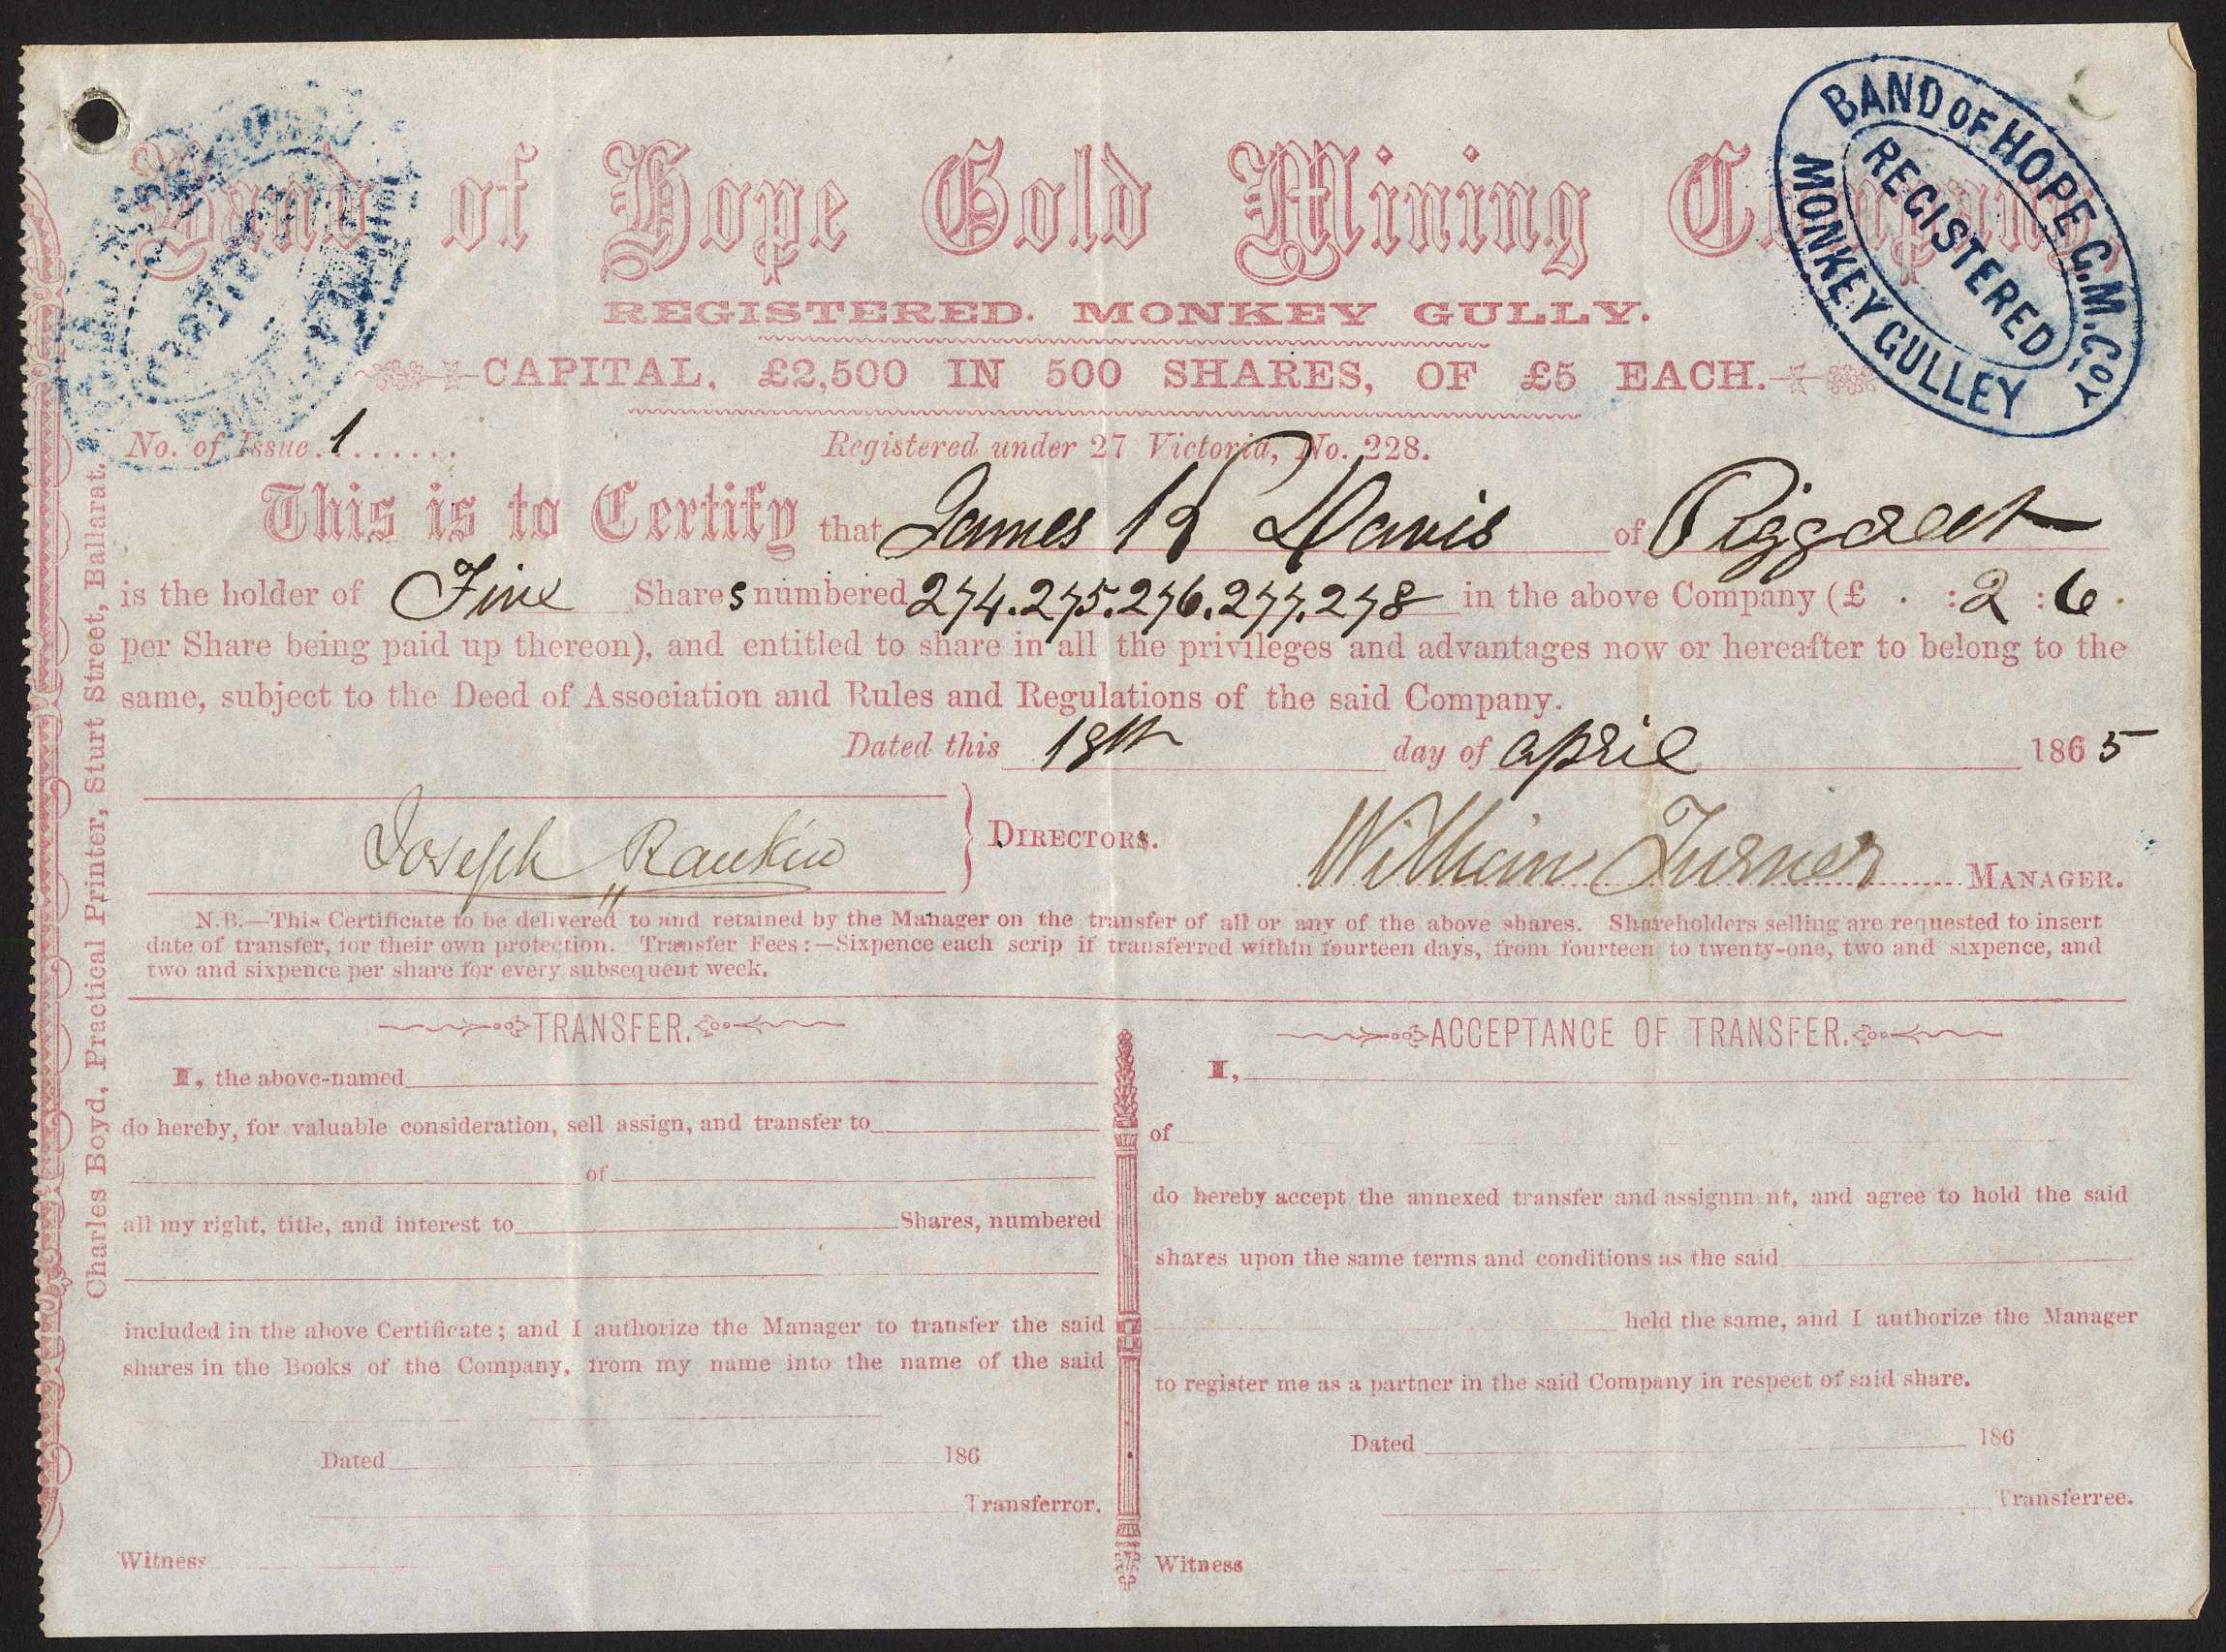 Band of Hope Gold Mining Company,
REGISTERED. MONKEY GULLY.
CAPITAL, £2,500 IN 500 SHARES, OF £5 EACH.
BAND OF HOPE G.M.COY
REGISTERED
MONKEY GULLEY
No. of Issue 1
Registered under 27 Victoria, No. 228.
This is to Certify that James H Davis of Piggoreet
is the holder of Five Shares numbered 274.275.276.277.278 in the above Company (£ : 2 : 6.
per Share being paid up thereon), and entitled to share in all the privileges and advantages now or hereafter to belong to the
same, subject to the Deed of Association and Rules and Regulations of the said Company.
Dated this 18th day of april 1865
Joseph Rankin
DIRECTORS.
William Turner MANAGER.
N.B.—This Certificate to be delivered to and retained by the Manager on the transfer of all or any of the above shares. Shareholders selling are requested to insert
date of transfer, for their own protection. Transfer Fees :—Sixpence each scrip if transferred within fourteen days, from fourteen to twenty-one, two and sixpence, and
two and sixpence per share for every subsequent week.
TRANSFER.
I, the above-named
do hereby, for valuable consideration, sell assign, and transfer to
of
all my right, title, and interest to Shares, numbered
included in the above Certificate ; and I authorize the Manager to transfer the said
shares in the Books of the Company, from my name into the name of the said
Dated 186
Transferror.
Witness
ACCEPTANCE OF TRANSFER.
I,
of
do hereby accept the annexed transfer and assignm nt, and agree to hold the said
shares upon the same terms and conditions as the said
held the same, and I authorize the Manager
to register me as a partner in the said Company in respect of said share.
Dated 186
Transferree.
Witness
Charles Boyd, Practical Printer, Sturt Street, Ballarat.